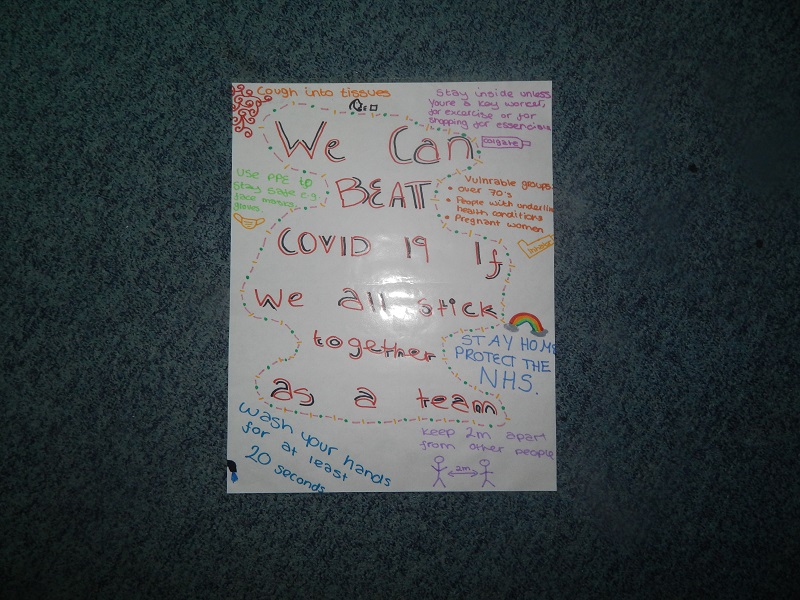 Cough into tissues
Stay inside unless
You're a key worker,
for excercise or for
shopping for essencials
colgate
We Can
BEAT
COVID 19 If
we all stick
together
as a team
Use PPE to
Stay safe e.g
face masks,
gloves
Vulnrable groups:
over 70's
People with underlin
health conditions
Pregnant women
STAY HOME
PROTECT THE
NHS.
Wash your hands
for at least
20 seconds
Keep 2m apart
from other people
2m